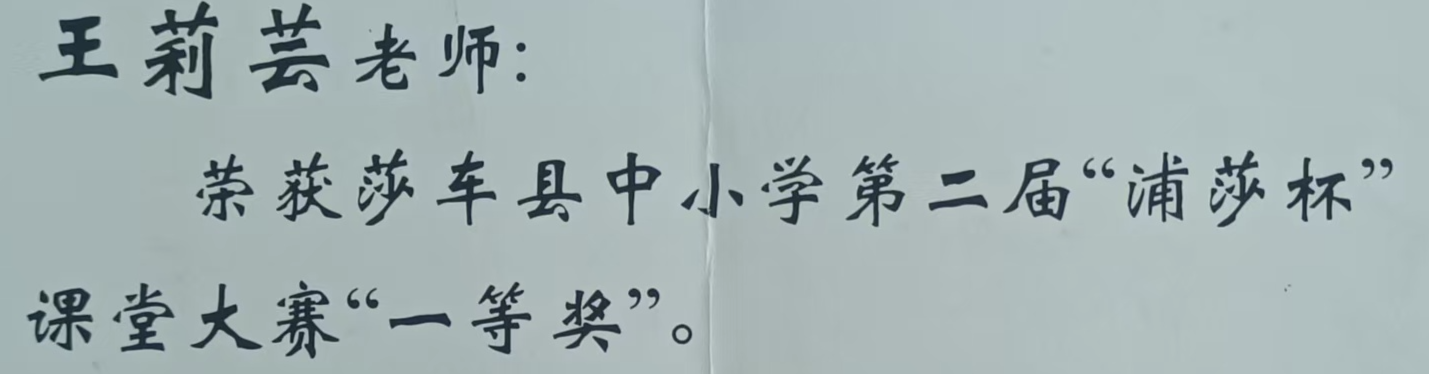 王莉芸老师：
荣获莎车县中小学第二届“浦莎杯”
课堂大赛“一等奖”。